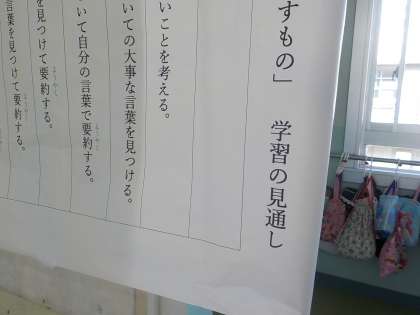 すもの」　学習の見通し
いことを考える。
いての大事な言葉を見つける。
いて自分の言葉で要約する。
を見つけて要約する。
言葉を見つけて要約する。